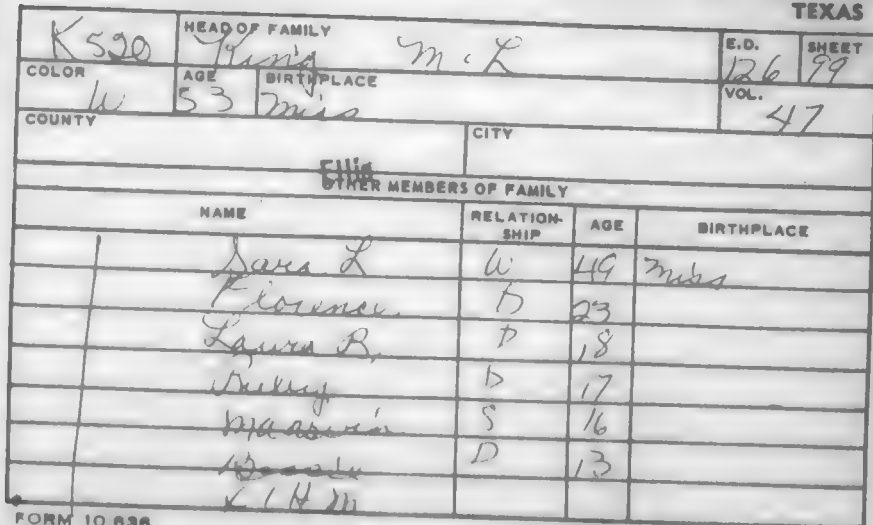 TEXAS
K520 HEAD OF FAMILY King M. L E.D. 126 SHEET 99
COLOR W AGE 53 BIRTHPLACE Miss VOL. 47
COUNTY CITY
Ellis
OTHER MEMBERS OF FAMILY
NAME RELATION-SHIP AGE BIRTHPLACE
Sara L W 49 Miss
Florence D 23
Laura B. D 18
D 17
S 16
D 13
FORM 10 636